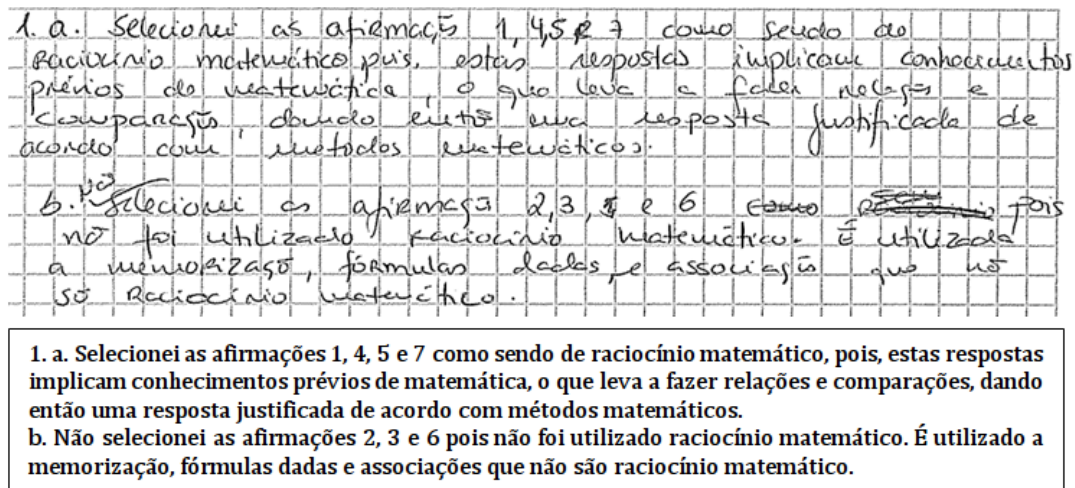 1. a. Selecionei as afirmaçõ 1, 4, 5 e 7 como sendo de
Raciocínio matemático pois, estas respostas implicam conhecimentos
prévios de matemática, o que leva a fazer relações e
comparações, dando então uma resposta justificada de
acordo com métodos matemáticos.
b. Não Selecionei as afirmaçõ 2, 3, e 6 pois
nõ foi utilizado raciocínio matemático. É utilizada
a memorizaçõ, fórmulas dadas, e associações que nõ
sõ Raciocínio matemático.
1. a. Selecionei as afirmações 1, 4, 5 e 7 como sendo de raciocínio matemático, pois, estas respostas
implicam conhecimentos prévios de matemática, o que leva a fazer relações e comparações, dando
então uma resposta justificada de acordo com métodos matemáticos.
b. Não selecionei as afirmações 2, 3 e 6 pois não foi utilizado raciocínio matemático. É utilizado a
memorização, fórmulas dadas e associações que não são raciocínio matemático.